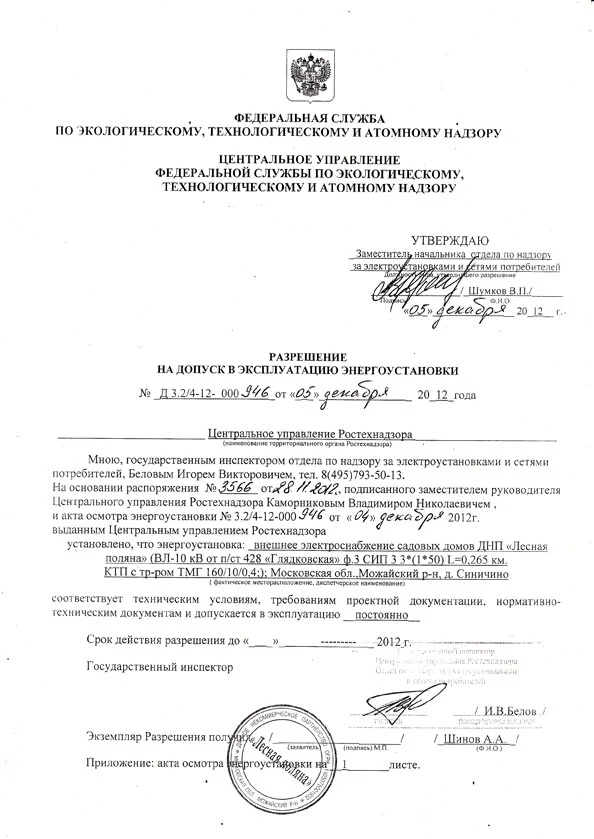 ФЕДЕРАЛЬНАЯ СЛУЖБА
ПО ЭКОЛОГИЧЕСКОМУ, ТЕХНОЛОГИЧЕСКОМУ И АТОМНОМУ НАДЗОРУ
ЦЕНТРАЛЬНОЕ УПРАВЛЕНИЕ
ФЕДЕРАЛЬНОЙ СЛУЖБЫ ПО ЭКОЛОГИЧЕСКОМУ,
ТЕХНОЛОГИЧЕСКОМУ И АТОМНОМУ НАДЗОРУ
УТВЕРЖДАЮ
Заместитель начальника отдела по надзору
за электроустановками и сетями потребителей
Должность лица, утвердившего разрешение
/ Шумков В.П./
Подпись Ф.И.О.
«05» декабря 20 12 г.
РАЗРЕШЕНИЕ
НА ДОПУСК В ЭКСПЛУАТАЦИЮ ЭНЕРГОУСТАНОВКИ
№ Д 3.2/4-12- 000 946 от «05» декабря 20 12 года
Центральное управление Ростехнадзора
(наименование территориального органа Ростехнадзора)
Мною, государственным инспектором отдела по надзору за электроустановками и сетями
потребителей, Беловым Игорем Викторовичем, тел. 8(495)793-50-13.
На основании распоряжения № 3566 от 28.11.2012, подписанного заместителем руководителя
Центрального управления Ростехнадзора Каморниковым Владимиром Николаевичем ,
и акта осмотра энергоустановки № 3.2/4-12-000 946 от «04» декабря 2012г.
выданным Центральным управлением Ростехнадзора
установлено, что энергоустановка: внешнее электроснабжение садовых домов ДНП «Лесная
поляна» (ВЛ-10 кВ от п/ст 428 «Глядковская» ф.3 СИП 3 3*(1*50) L=0,265 км.
КТП с тр-ром ТМГ 160/10/0,4;); Московская обл.,Можайский р-н, д. Синичино
( фактическое месторасположение, диспетчерское наименование)
соответствует техническим условиям, требованиям проектной документации, нормативно-
техническим документам и допускается в эксплуатацию постоянно
Срок действия разрешения до « » --------- 2012 г.
Центрального управления Ростехнадзора
Государственный инспектор
/ И.В.Белов /
подпись
Экземпляр Разрешения получил / / / Шинов А.А. /
(заявитель) (подпись) М.П. (Ф.И.О.)
«Лесная поляна»
Приложение: акта осмотра энергоустановки на 1 листе.